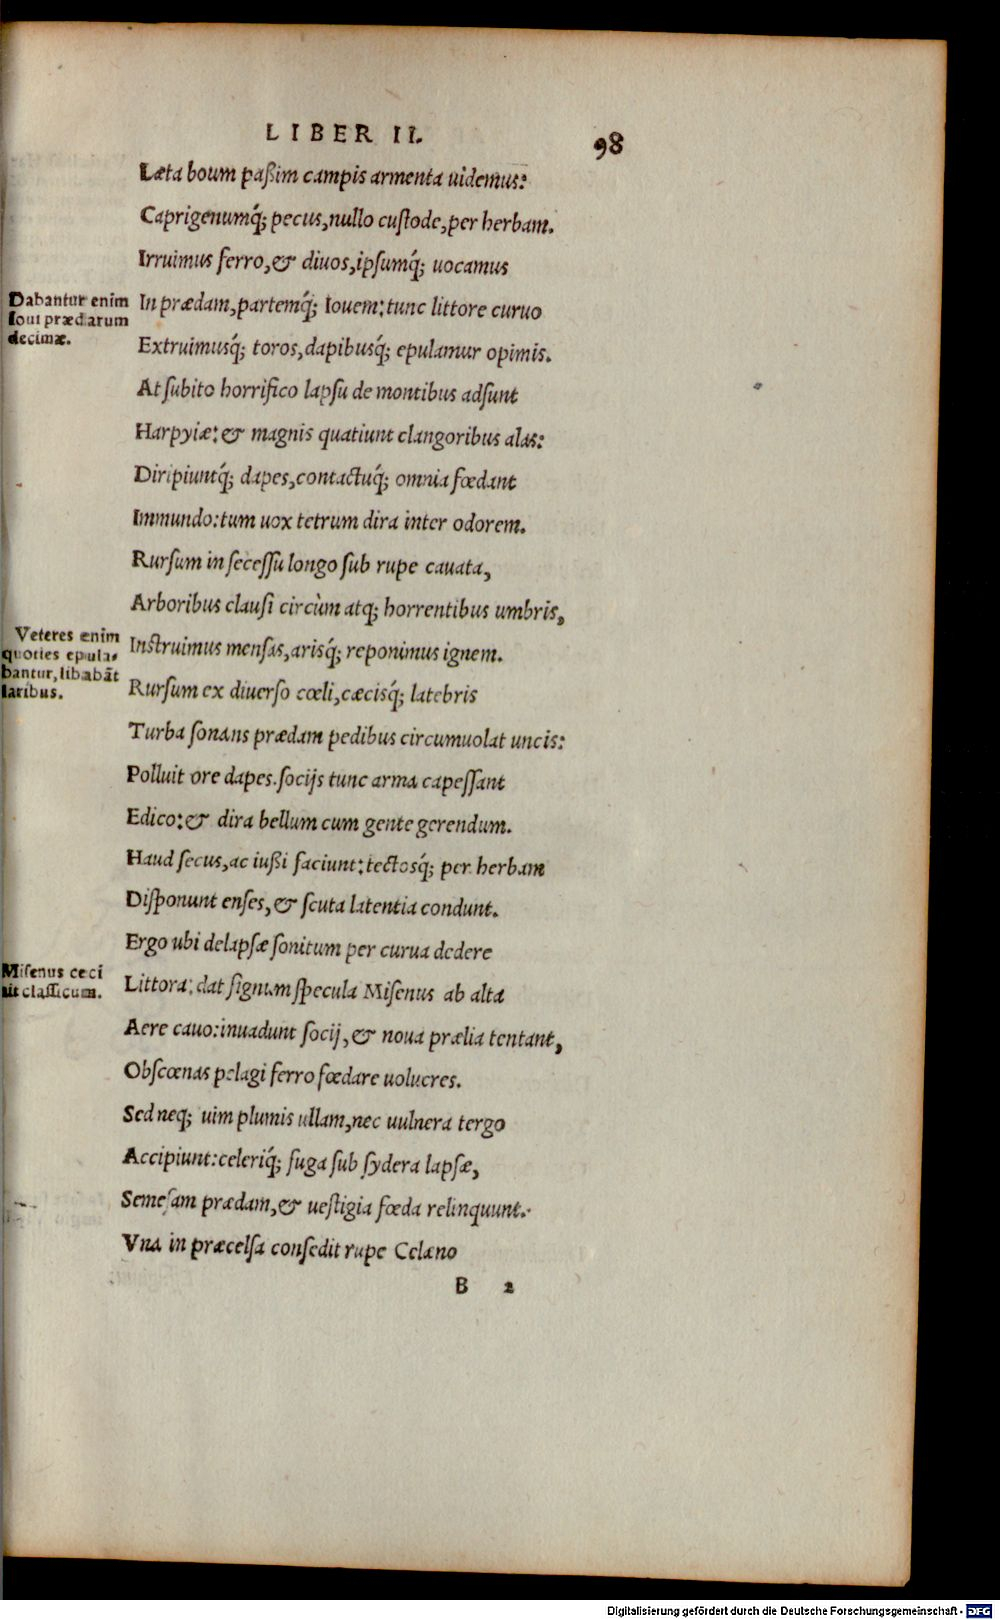 LIBER II.
98
Læta boum paßim campis armenta uidemus:
Caprigenumq́; pecus, nullo custode, per herbam.
Irruimus ferro, & diuos, ipsumq́; uocamus
Dabantur enim
Ioui prædarum
decimæ.
In prædam, partemq́; Iouem: tunc littore curuo
Extruimusq́; toros, dapibusq́; epulamur opimis.
At subito horrifico lapsu de montibus adsunt
Harpyiæ: & magnis quatiunt clangoribus alas:
Diripiuntq́; dapes, contactuq́; omnia fœdant
Immundo: tum uox tetrum dira inter odorem.
Rursum in secessu longo sub rupe cauata,
Arboribus clausi circùm atq; horrentibus umbris,
Veteres enim
quoties epula-
bantur, libabãt
laribus.
Instruimus mensas, arisq́; reponimus ignem.
Rursum ex diuerso cœli, cæcisq́; latebris
Turba sonans prædam pedibus circumuolat uncis:
Polluit ore dapes. socijs tunc arma capessant
Edico: & dira bellum cum gente gerendum.
Haud secus, ac iußi faciunt: tectosq́; per herbam
Disponunt enses, & scuta latentia condunt.
Ergo ubi delapsæ sonitum per curua dedere
Misenus ceci
nit classicum.
Littora: dat signum specula Misenus ab alta
Aere cauo: inuadunt socij, & noua prælia tentant,
Obscœnas pelagi ferro fœdare uolucres.
Sed neq; uim plumis ullam, nec uulnera tergo
Accipiunt: celeriq́; fuga sub sydera lapsæ,
Semesam prædam, & uestigia fœda relinquunt.
Vna in præcelsa consedit rupe Celæno
B 2
Digitalisierung gefördert durch die Deutsche Forschungsgemeinschaft - DFG